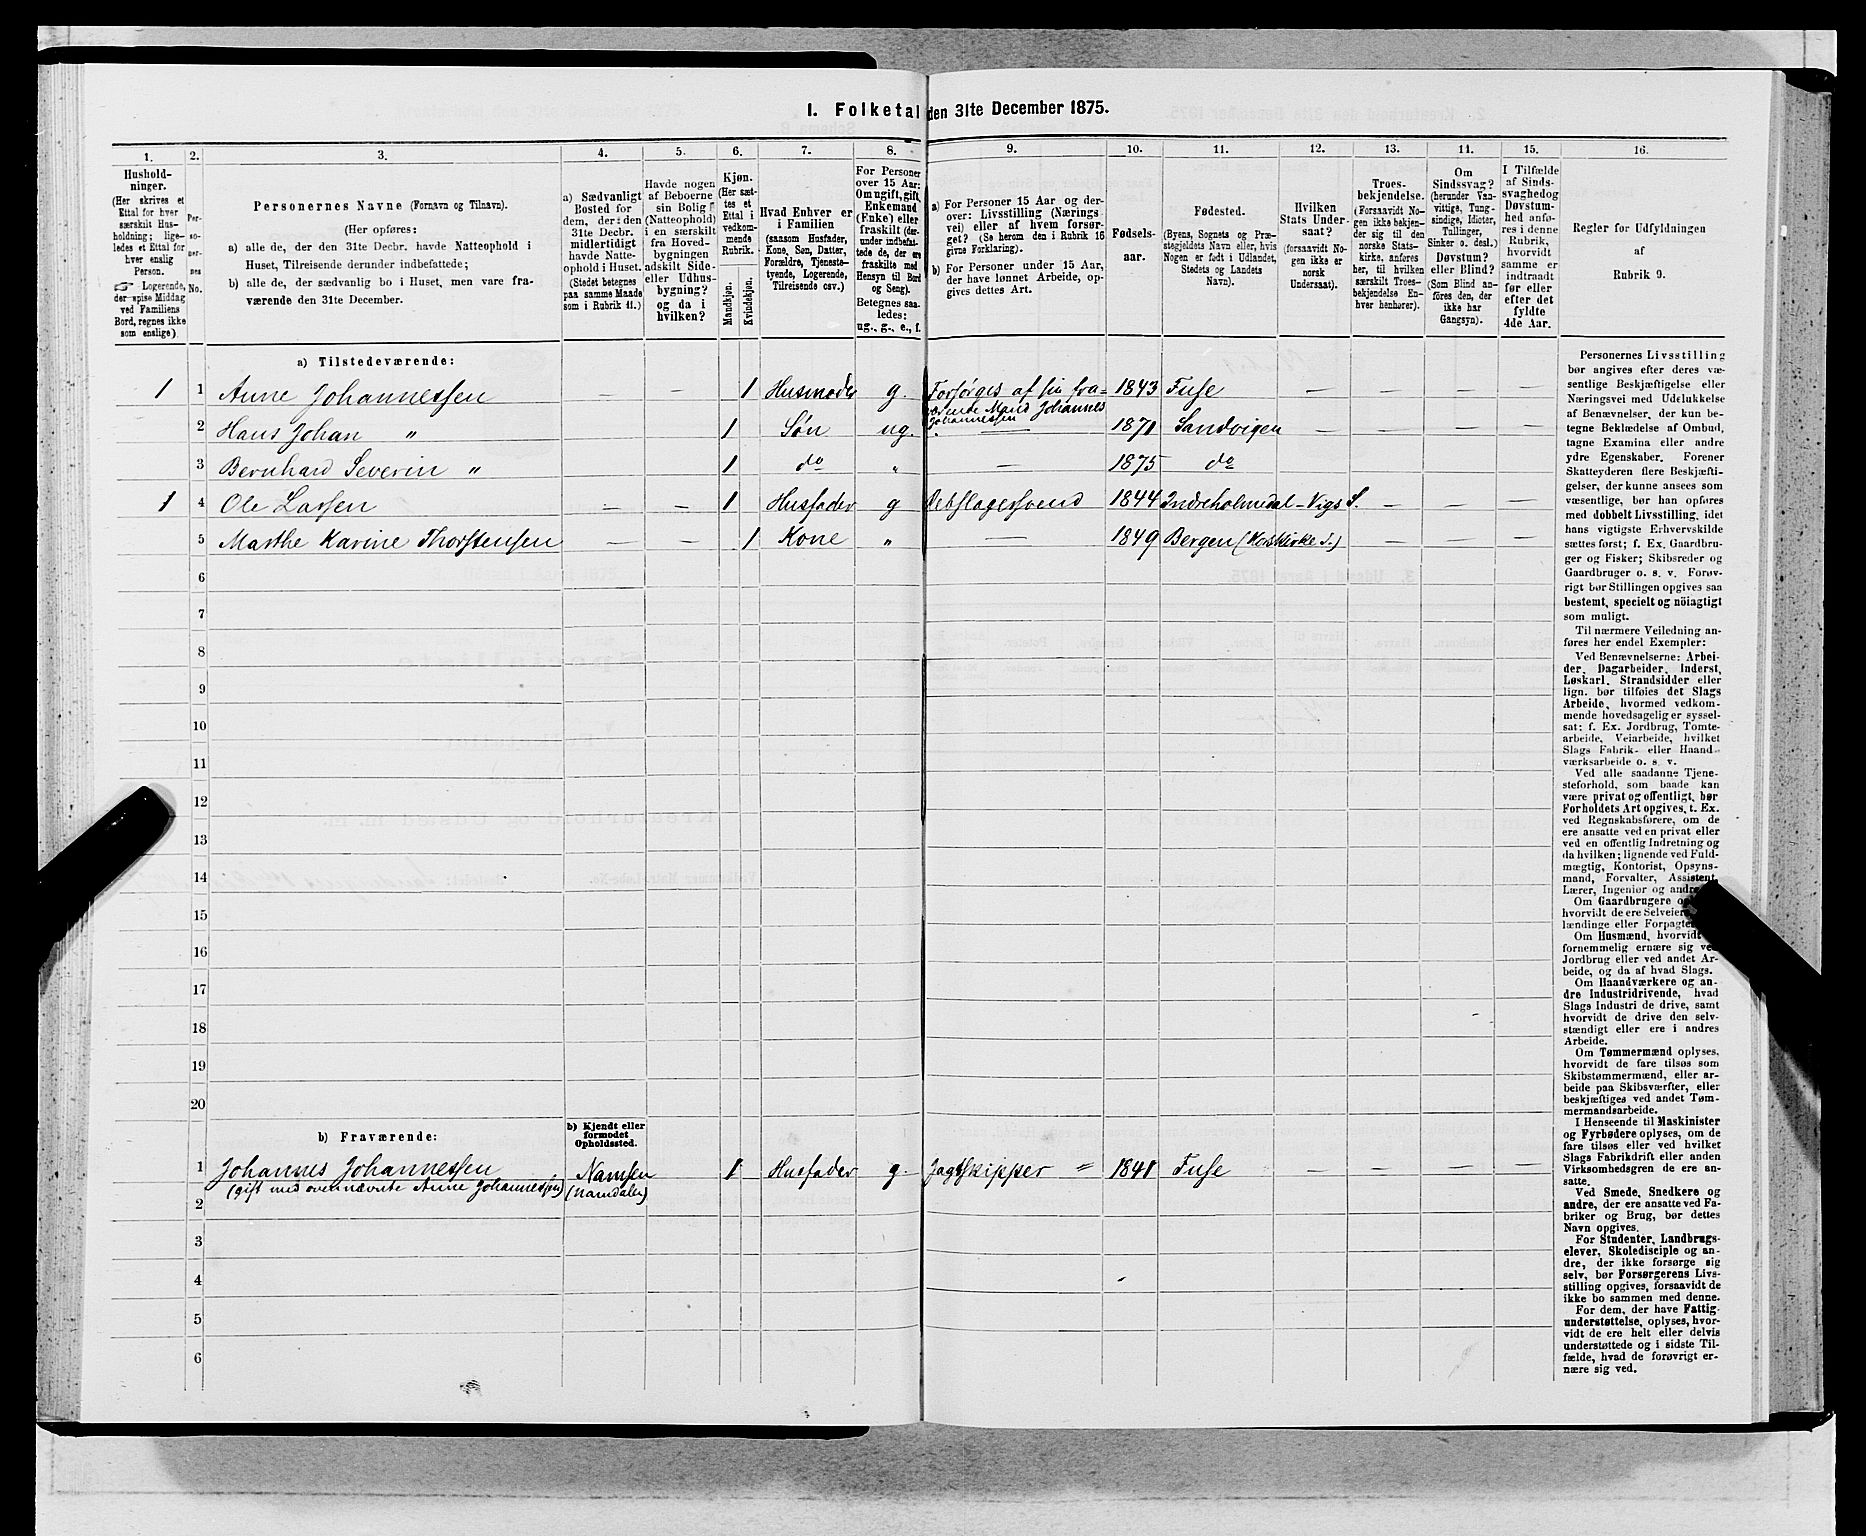 I. Folketal den 31te December 1875.
1.
2.
3.
4.
5.
6.
7.
8.
9.
10.
11.
12.
13.
11.
15.
16.
Hushold-
ninger.
(Her skrives et
Ettal for hver
særskilt Hus-
holdning; lige-
ledes et Ettal for
hver enslig
Person.
☞ Logerende,
der spise Middag
ved Familiens
Bord, regnes ikke
som enslige).
Per-
so-
ner-
nes
No.
Personernes Navne (Fornavn og Tilnavn).
(Her opføres:
a) alle de, der den 31te Decbr. havde Natteophold i
Huset, Tilreisende derunder indbefattede;
b) alle de, der sædvanlig bo i Huset, men vare fra-
værende den 31te December.
a) Sædvanligt
Bosted for
dem, der den
31te Decbr.
midlertidigt
havde Natte-
ophold i Huset.
(Stedet betegnes
paa samme Maade
som i Rubrik 11.)
Havde nogen
af Beboerne
sin Bolig
(Natteophold)
i en særskilt
fra Hoved-
bygningen
adskilt Side-
eller Udhus-
bygning?
og da i
hvilken?
Kjøn.
(Her sæt-
tes et
Ettal i
vedkom-
mende
Rubrik.
Mandkjøn.
Kvindekjøn.
Hvad Enhver er
i Familien
(saasom Husfader,
Kone, Søn, Datter,
Forældre, Tjeneste-
tyende, Logerende,
Tilreisende osv.)
For Personer
over 15 Aar:
Om ugift, gift,
Enkemand
(Enke) eller
fraskilt (der-
under indbefat-
tede de, der ere
fraskilte med
Hensyn til Bord
og Seng).
Betegnes saa-
ledes:
ug., g., e., f.
a) For Personer 15 Aar og der-
over: Livsstilling (Nærings
vei) eller af hvem forsør-
get? (Se herom den i Rubrik 16
givne Forklaring).
b) For Personer under 15 Aar,
der have lønnet Arbeide, op-
gives dettes Art.
Fødsels-
aar.
Fødested.
(Byens, Sognets og Præ-
stegjeldets Navn eller, hvis
Nogen er født i Udlandet,
Stedets og Landets
Navn).
Hvilken
Stats Under-
saat?
(forsaavidt No-
gen ikke er
norsk
Undersaat).
Troes-
bekjendelse.
(Forsaavidt No-
gen ikke bekjen-
der sig til den
norske Stats-
kirke, anføres
her, til hvilken
særskilt Troes-
bekjendelse En-
hver henhører).
Om
Sindssvag?
(herunder Van-
vittige, Tung-
sindige, Idioter,
Tullinger,
Sinker o. desl.)
Døvstum?
eller Blind?
(Som Blind an-
føres den, der
ikke har
Gangsyn).
I Tilfælde
af Sinds-
svaghed og
Døvstum-
hed anfø-
res i denne
Rubrik,
hvorvidt
samme er
indtraadt
før eller
efter det
fyldte
4de Aar.
Regler for Udfyldningen
af
Rubrik 9.
a) Tilstedeværende:
1 1 Anne Johannessen — — 1 Husmoder g. Forsørges af sin fra- 1843 Fuse — — — —
værende Mand Johannes
Johannessen
2 Hans Johan " 1 Søn ug. — 1871 Sandvigen
3 Bernhard Severin " 1 do " — 1875 do
1 4 Ole Larsen — — 1 Husfader g Rebslagersvend 1844 Indreholmedal - Vigs S. — — —
5 Marthe Karine Thorstensen — — 1 Kone " — 1849 Bergen (Korskirke S.) — — —
6
7
8
9
10
11
12
13
14
15
16
17
18
19
20
b) Fraværende:
b) Kjendt eller
formodet
Opholdssted.
1 Johannes Johannessen Namsen 1 Husfader g. Jagtskipper " 1841 Fuse — — — —
(gift med overnævnte Anne Johannessen) (Namdalen)
2
3
4
5
6
Personernes Livsstilling
bør angives efter deres væ-
sentlige Beskjæftigelse eller
Næringsvei med Udelukkelse
af Benævnelser, der kun be-
tegne Beklædelse af Ombud,
tagne Examina eller andre
ydre Egenskaber. Forener
Skatteyderen flere Beskjæfti-
gelser, der kunne ansees som
væsentlige, bør han opføres
med dobbelt Livsstilling, idet
hans vigtigste Erhvervskilde
sættes først; f. Ex. Gaardbru-
ger og Fisker; Skibsreder og
Gaardbruger o. s. v. Forøv-
rigt bør Stillingen opgives saa
bestemt, specielt og nöiagtigt
som muligt.
Til nærmere Veiledning an-
føres her endel Exempler:
Ved Benævnelserne: Arbei-
der, Dagarbeider, Inderst,
Løskarl, Strandsidder eller
lign. bør tilføies det Slags
Arbeide, hvormed vedkom-
mende hovedsagelig er syssel-
sat; f. Ex. Jordbrug, Tomte-
arbeide, Veiarbeide, hvilket
Slags Fabrik- eller Haand-
værksarbeide o. s. v.
Ved alle saadanne Tjene-
steforhold, som baade kan
være privat og offentligt, bør
Forholdets Art opgives, t. Ex.
ved Regnskabsførere, om de
ere ansatte ved en privat eller
ved en offentlig Indretning og
da hvilken; lignende ved Fuld-
mægtig, Kontorist, Opsyns-
mand, Forvalter, Assistent,
Lærer, Ingeniør og andre
Om Gaardbrugere
hvorvidt de ere Selveiere
lændinge eller Forpagtere
Om Husmænd, hvorvidt
fornemmelig ernære sig ved
Jordbrug eller ved andet Ar-
beide, og da af hvad Slags.
Om Haandværkere og an-
dre Industridrivende, hvad
Slags Industri de drive, samt
hvorvidt de drive den selv-
stændigt eller ere i andres
Arbeide.
Om Tømmermænd oplyses,
hvorvidt de fare tilsøs som
Skibstømmermænd, eller ar-
beide paa Skibsværfter, eller
beskjæftiges ved andet Tøm-
mermandsarbeide.
I Henseende til Maskinister
og Fyrbødere oplyses, om de
fare tilsøs eller ved hvilket
Slags Fabrikdrift eller anden
Virksomhedsgren de ere an-
satte.
Ved Smede, Snedkere og
andre, der ere ansatte ved Fa-
briker og Brug, bør dettes
Navn opgives.
For Studenter, Landbrugs-
elever, Skoledisciple og an-
dre, der ikke forsørge sig
selv, bør Forsørgerens Livs-
stilling opgives, forsaavidt de
ikke bo sammen med denne.
For dem, der have Fattig-
understøttelse, oplyses, hvor-
vidt de ere helt eller delvis
understøttede og i sidste Til-
fælde, hvad de forøvrigt er-
nære sig ved.